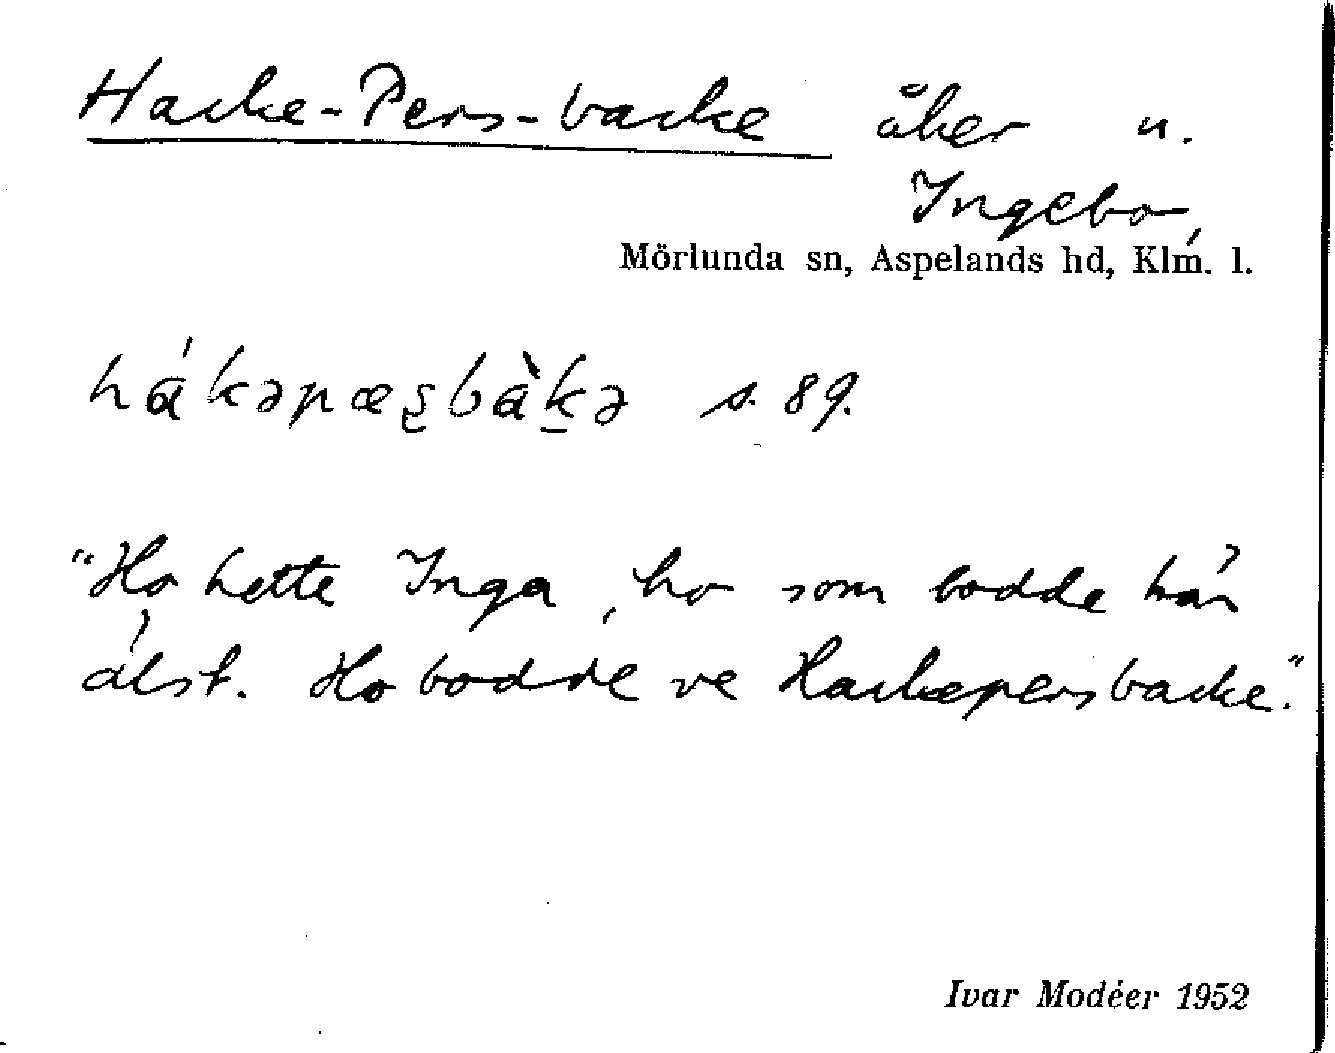 Hacke-Pers-backe åker u.
Ingebo,
Mörlunda sn, Aspelands hd, Klm. l.
hákəpæʂbàḵə s. 89.
"Ho hette Inga, ho som bodde här
älst. Ho bodde ve Hackepersbacke."
Ivar Modéer 1952